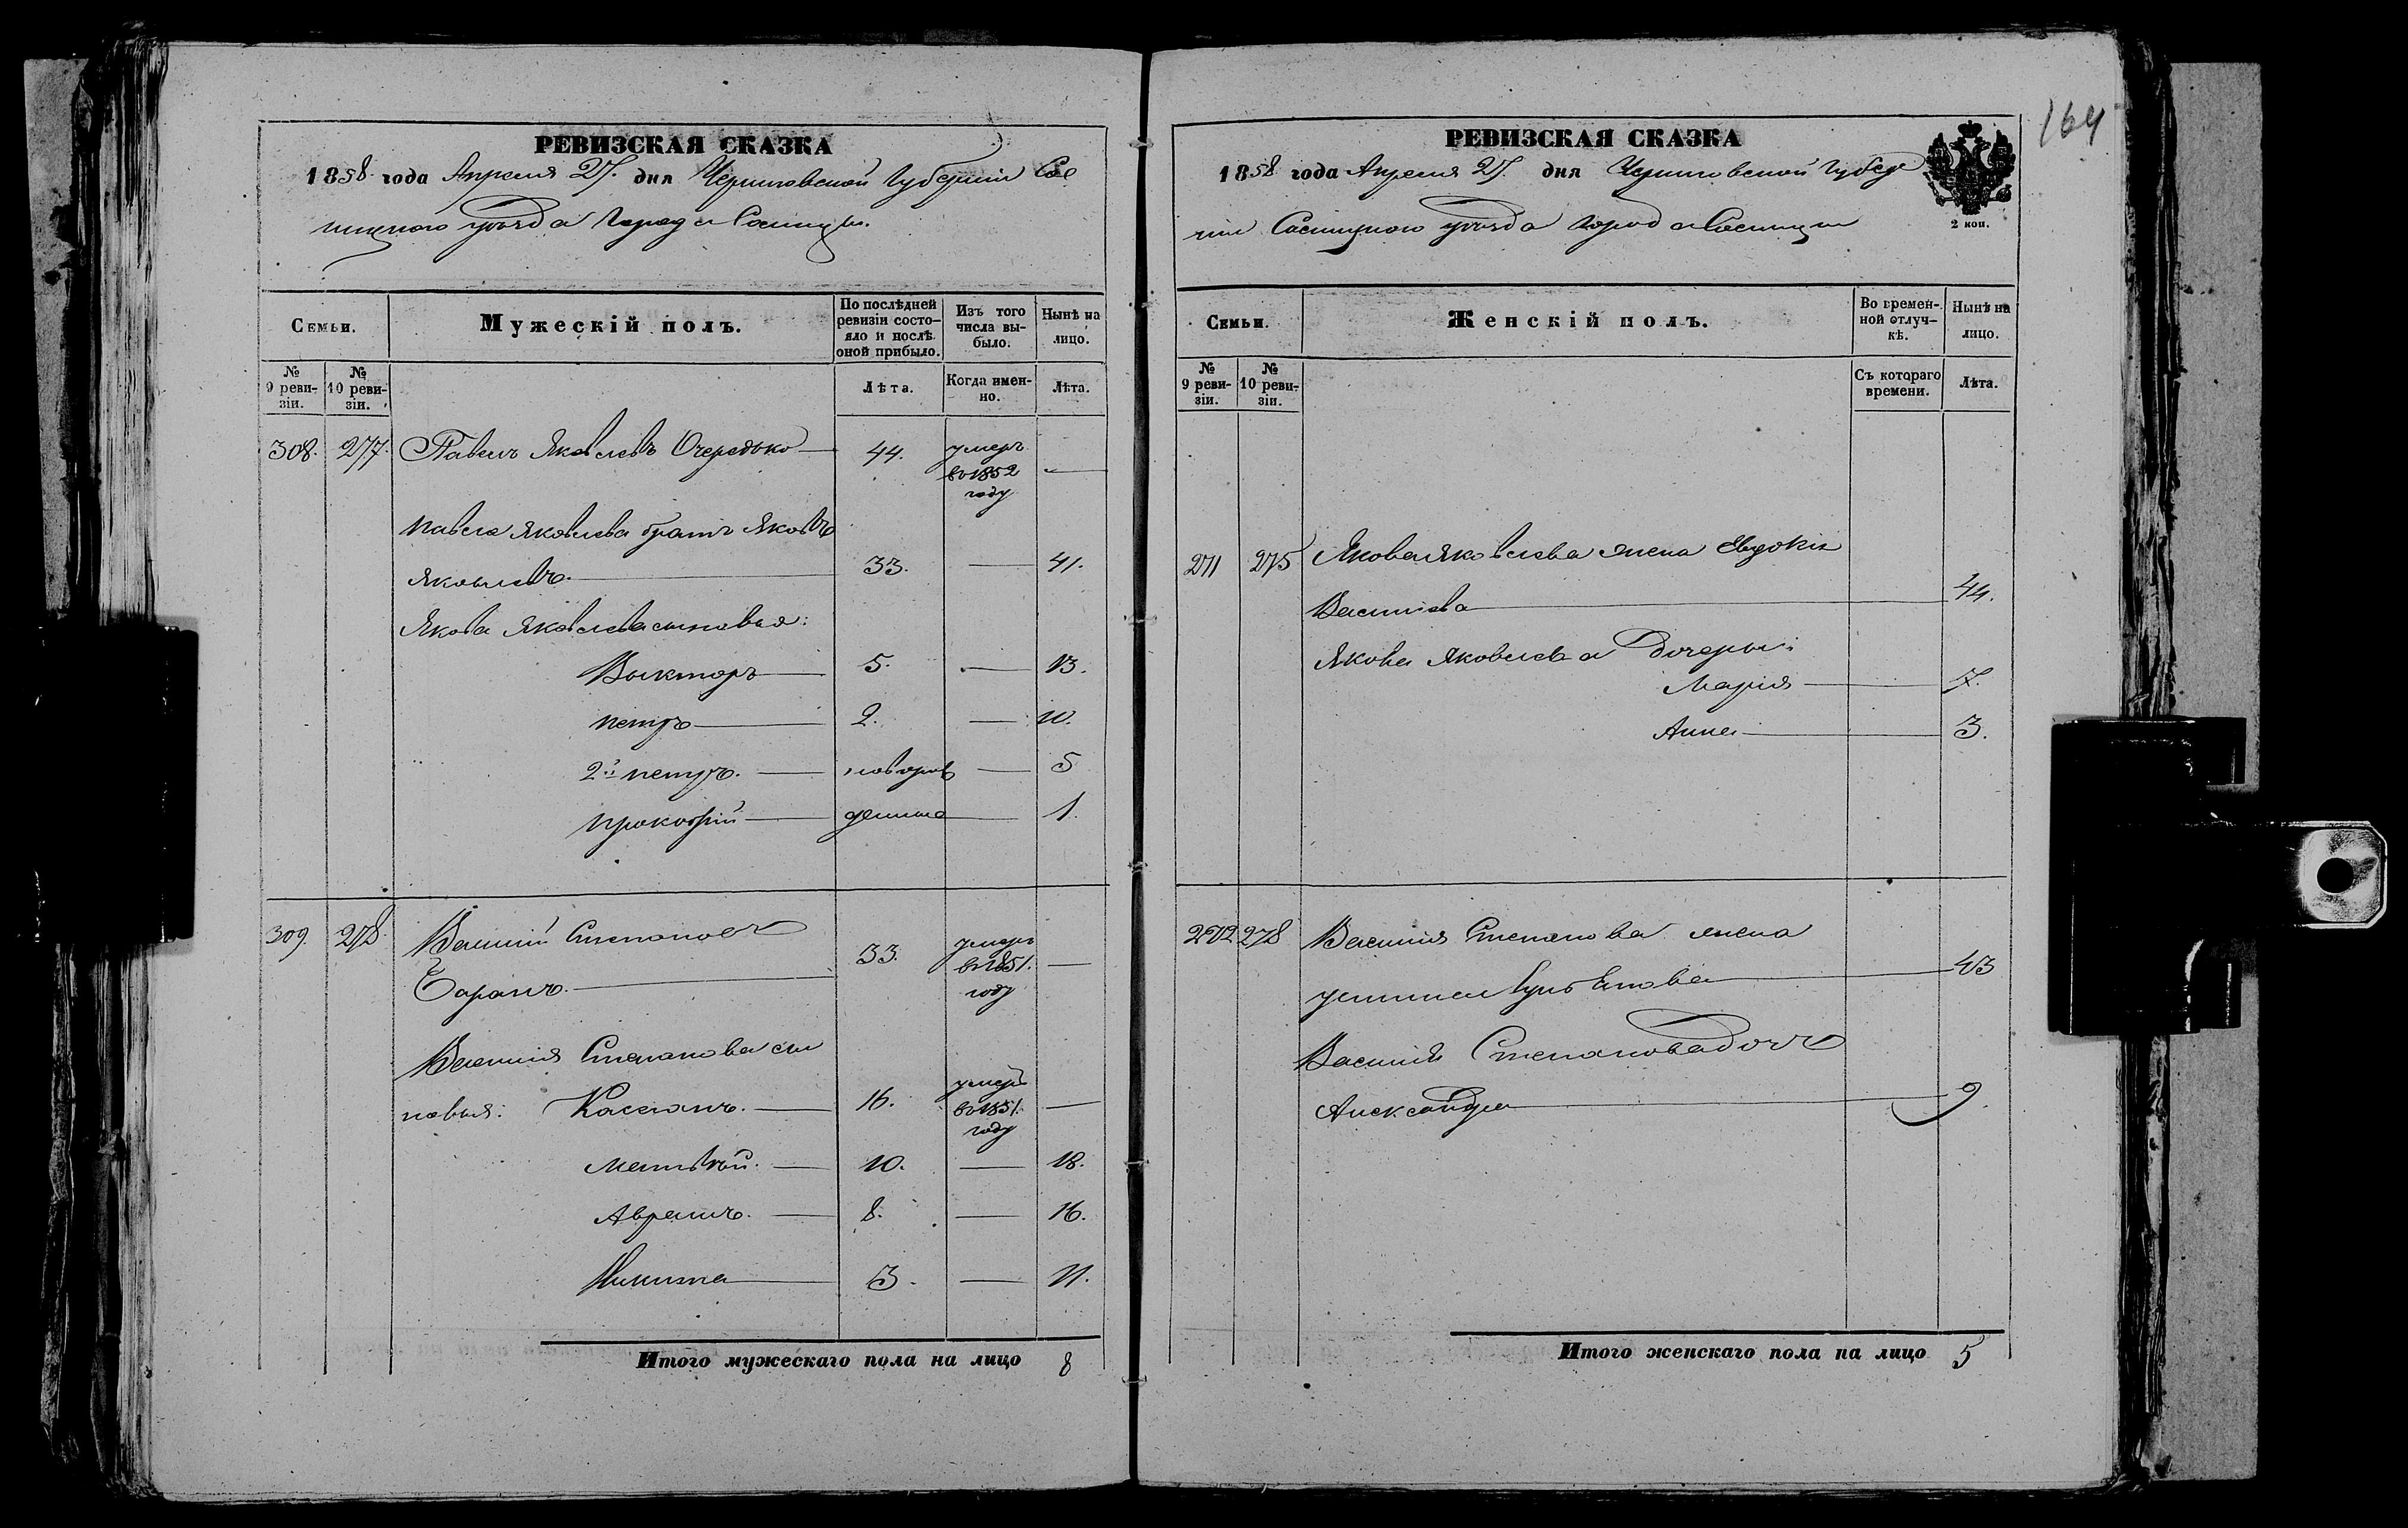 164
РЕВИЗСКАЯ СКАЗКА
1858 года Апреля 27. дня Черниговской Губернии Сос
ницкого уѣзда Города Сосницы.
Семьи.
Мужескій полъ.
По послѣдней
ревизіи состо-
яло и послѣ
оной прибыло.
Изъ того
числа вы-
было.
Нынѣ на
лицо.
№
9 реви-
зіи.
№
10 реви-
зіи.
Лѣта.
Когда имен-
но.
Лѣта.
308. 277. Павелъ Яковлевъ Очередько 44. умеръ
въ 1852
году
Павла Яковлева братъ Яковъ
Яковлевъ. 33. 41.
Якова Яковлева сыновья:
Викторъ 5. 13.
Петръ 2. 10.
2й Петръ. новорож 5
Прокофій денные 1.
309. 278. Василій Степановъ
Баранъ. 33. умеръ
въ 1851.
году
Василія Степанова сы
новья: Касьянъ. 16. умеръ
въ 1851.
году
Матвѣй. 10. 18.
Аврамъ. 8. 16.
Никита 3. 11.
Итого мужескаго пола на лицо 8
РЕВИЗСКАЯ СКАЗКА
1858 года Апреля 27. дня Черниговской Губер
ніи Сосницкого уѣзда города Сосницы
2 коп.
Семьи.
Женскій полъ.
Во времен-
ной отлуч-
кѣ.
Нынѣ на
лицо.
№
9 реви-
зіи.
№
10 реви-
зіи.
Съ котораго
времени.
Лѣта.
271 275 Якова Яковлева жена Евдокія
Василіева 44.
Якова Яковлева дочеры:
Марія 7.
Анна 3.
272 278 Василія Степанова жена
43
Василія Степанова дочь
Александра 9.
Итого женскаго пола на лицо 5